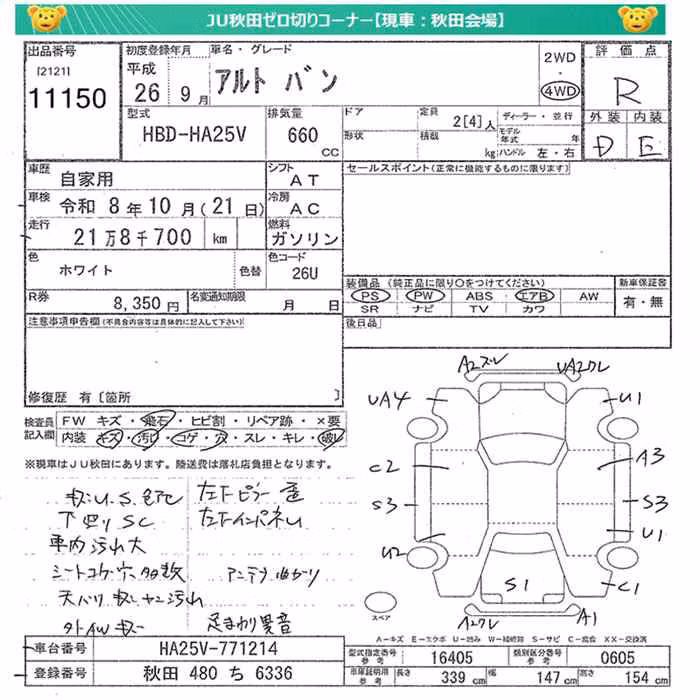 JU秋田ゼロ切りコーナー【現車：秋田会場】
出品番号
[2121]
11150
初度登録年月
平成
26 9月
車名・グレード
アルト バン
2WD
・
4WD
評価点
R
外装 内装
D E
型式
HBD-HA25V
排気量
660
CC
ドア
形状
定員 2[4]人
積載 kg
ディーラー・並行
モデル年式 年
ハンドル 左・右
車歴
自家用
シフト
AT
車検
令和 8年10月(21日)
冷房
AC
走行
21万8千700 km
燃料
ガソリン
色
ホワイト
色替
色コード
26U
R券
8,350円
名変通知期限
月 日
セールスポイント(正常に機能するものに限ります)
装備品 (純正品に限り○をつけてください)
PS PW ABS エアB AW
SR ナビ TV カワ
新車保証書
有・無
後日品
注意事項申告欄(不具合内容等は具体的に記入して下さい)
修復歴 有〔箇所 〕
検査員記入欄
FW キズ・飛石・ヒビ割・リペア跡・×要
内装 キズ・汚れ・コゲ・穴・スレ・キレ・破レ
※現車はJU秋田にあります。陸送費は落札店負担となります。
下回りSC
車内汚れ大
シートコゲ穴多数
アンテナ曲がり
足まわり異音
UA4
U1
C2
A3
S3
S3
U2
U1
S1
C1
A1
スペア
A－キズ E－エクボ U－凹み W－補修跡 S－サビ C－腐食 XX－交換済
車台番号
HA25V-771214
登録番号
秋田 480 ち 6336
型式指定番号
参考
16405
類別区分番号
参考
0605
車庫証明用
参考
長さ 339 cm
幅 147 cm
高さ 154 cm